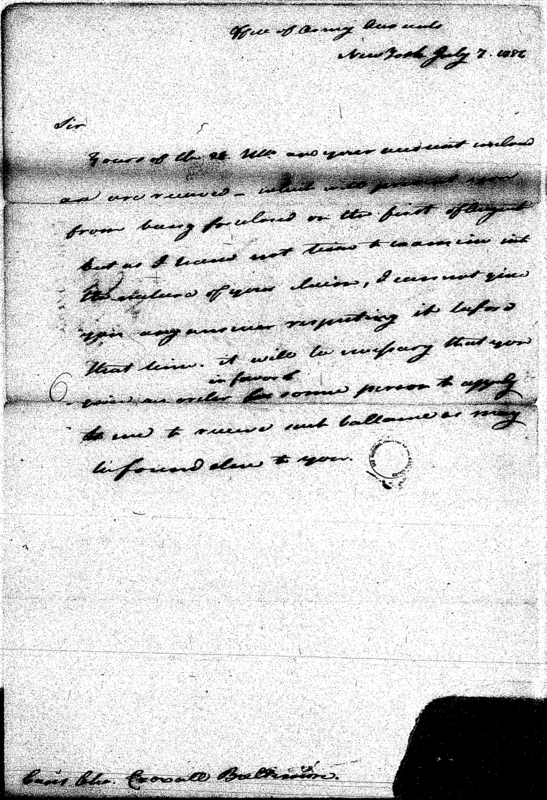 Office of Army Accounts
New York July 7. 1786
Sir
Yours of the Ulto. and your account inclosed
are received — which will prevent your
from being foreclosed on the first of August
but as I have not time to examine into
the nature of your claim, I cannot give
you any answer respecting it before
that time. it will be necessary that you
give an order in favor of some person to apply
to me to receive such ballance as may
be found due to you.
6
Capt Chs. Croxall Baltimore.